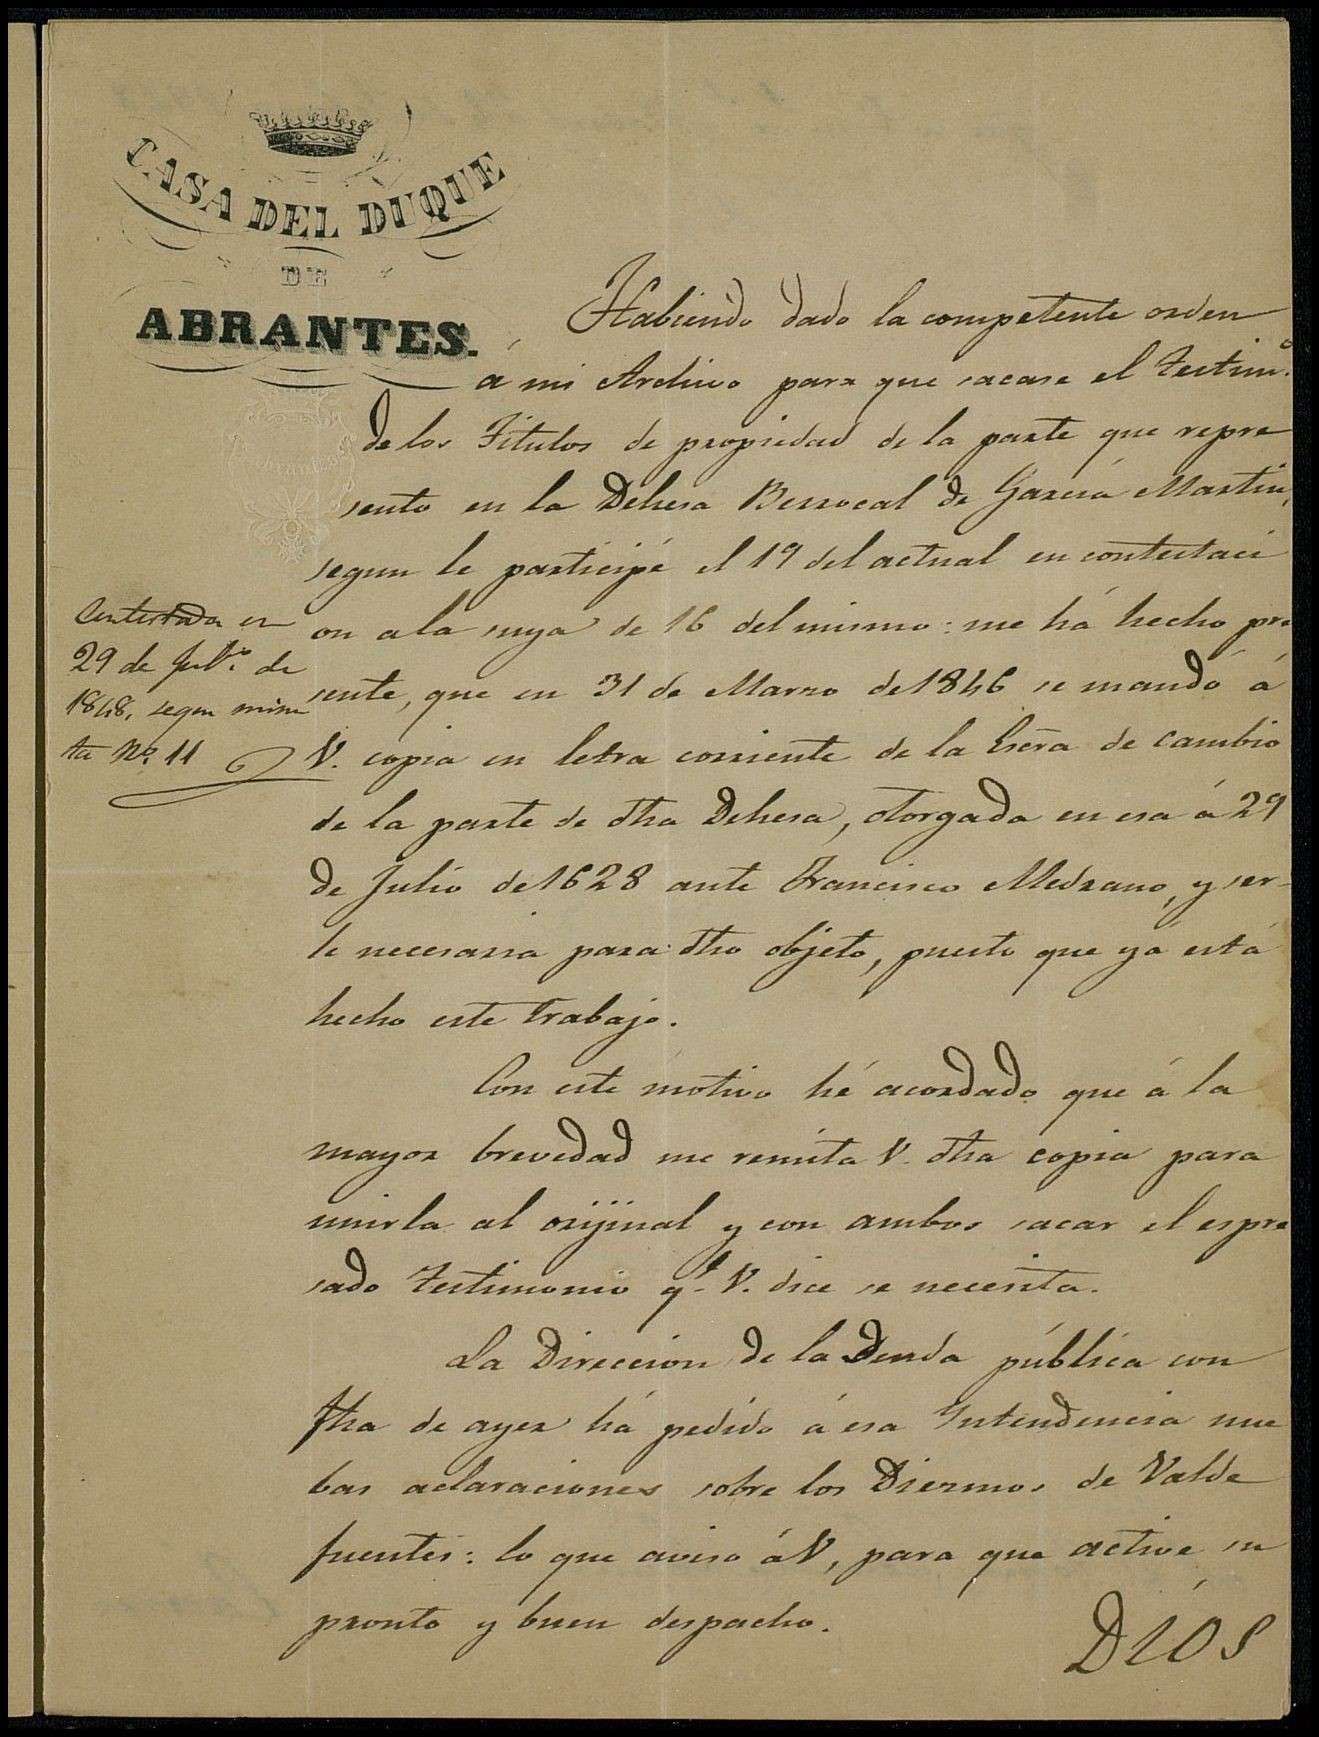 CASA DEL DUQUE
DE
ABRANTES.
Habiendo dado la competente orden
á mi Archivo para que sacase el testim.º
de los Títulos de propiedad de la parte que repre
sento en la Dehesa Berrocal de Garcia Martin,
segun le participé el 19 del actual en contestaci
on a la suya de 16 del mismo: me há hecho pre
sente, que en 31 de Marzo de 1846 se mandó á
V. copia en letra corriente de la Escra de cambio
de la parte de dha Dehesa, otorgada en esa á 29
de Julio de 1628 ante Francisco Medrano, y ser
le necesaria para dho objeto, puesto que yá está
hecho este trabajo.
Con este motivo hé acordado que á la
mayor brevedad me remita V. dha copia para
unirla al orijinal y con ambos sacar el espre
sado testimonio q.e V. dice se necesita.
La Direccion de la Deuda pública con
fha de ayer há pedido á esa Intendencia nue
bas aclaraciones sobre los Diezmos de Valde
fuentes: lo que aviso á V, para que active su
pronto y buen despacho.
Dios
Contestada en
29 de de
1848, segun minu
ta Nº. 11